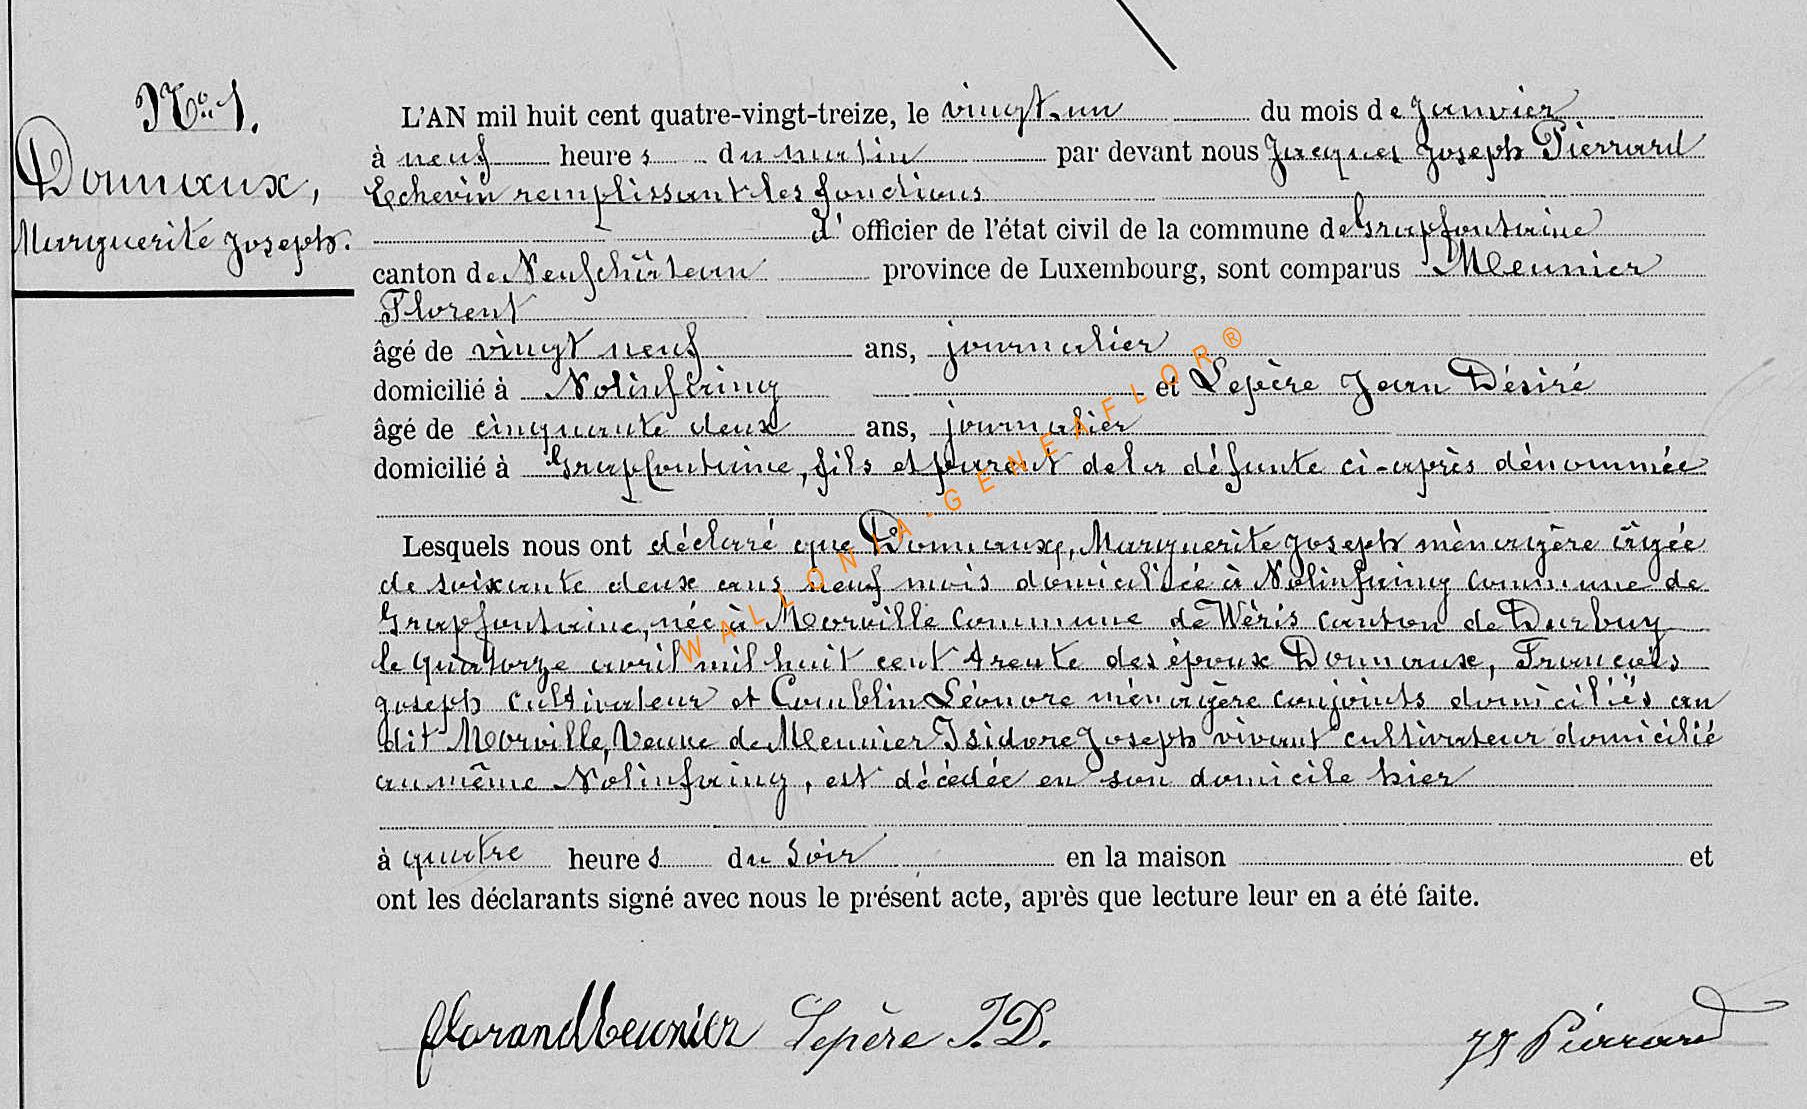 N° 1.
Donnaux,
Marguerite Joseph.
L'AN mil huit cent quatre-vingt-treize, le vingt-un du mois de Janvier
à neuf heures du matin par devant nous Jacques Joseph Pierrard
Echevin remplissant les fonctions
d' officier de l'état civil de la commune de Grapfontaine
canton de Neufchâteau province de Luxembourg, sont comparus Meunier
Florent
âgé de vingt neuf ans, journalier
domicilié à Nolinfaing et Lepère Jean Désiré
âgé de cinquante deux ans, journalier
domicilié à Grapfontaine, fils et parent de la défunte ci-après dénommée
Lesquels nous ont déclaré que Donnaux, Marguerite Joseph ménagère âgée
de soixante deux ans neuf mois domiciliée à Nolinfaing commune de
Grapfontaine, née à Morville commune de Wéris canton de Durbuy
le quatorze avril mil huit cent trente des époux Donnaux, François
Joseph cultivateur et Comblin Léonore ménagère conjoints domiciliés au
dit Morville, Veuve de Meunier Isidore Joseph vivant cultivateur domicilié
au même Nolinfaing, est décédée en son domicile hier
à quatre heures du soir en la maison et
ont les déclarants signé avec nous le présent acte, après que lecture leur en a été faite.
WALLONIA-GENEAFLOR®
floran Meunier Lepère J.D. JJ Pierrard